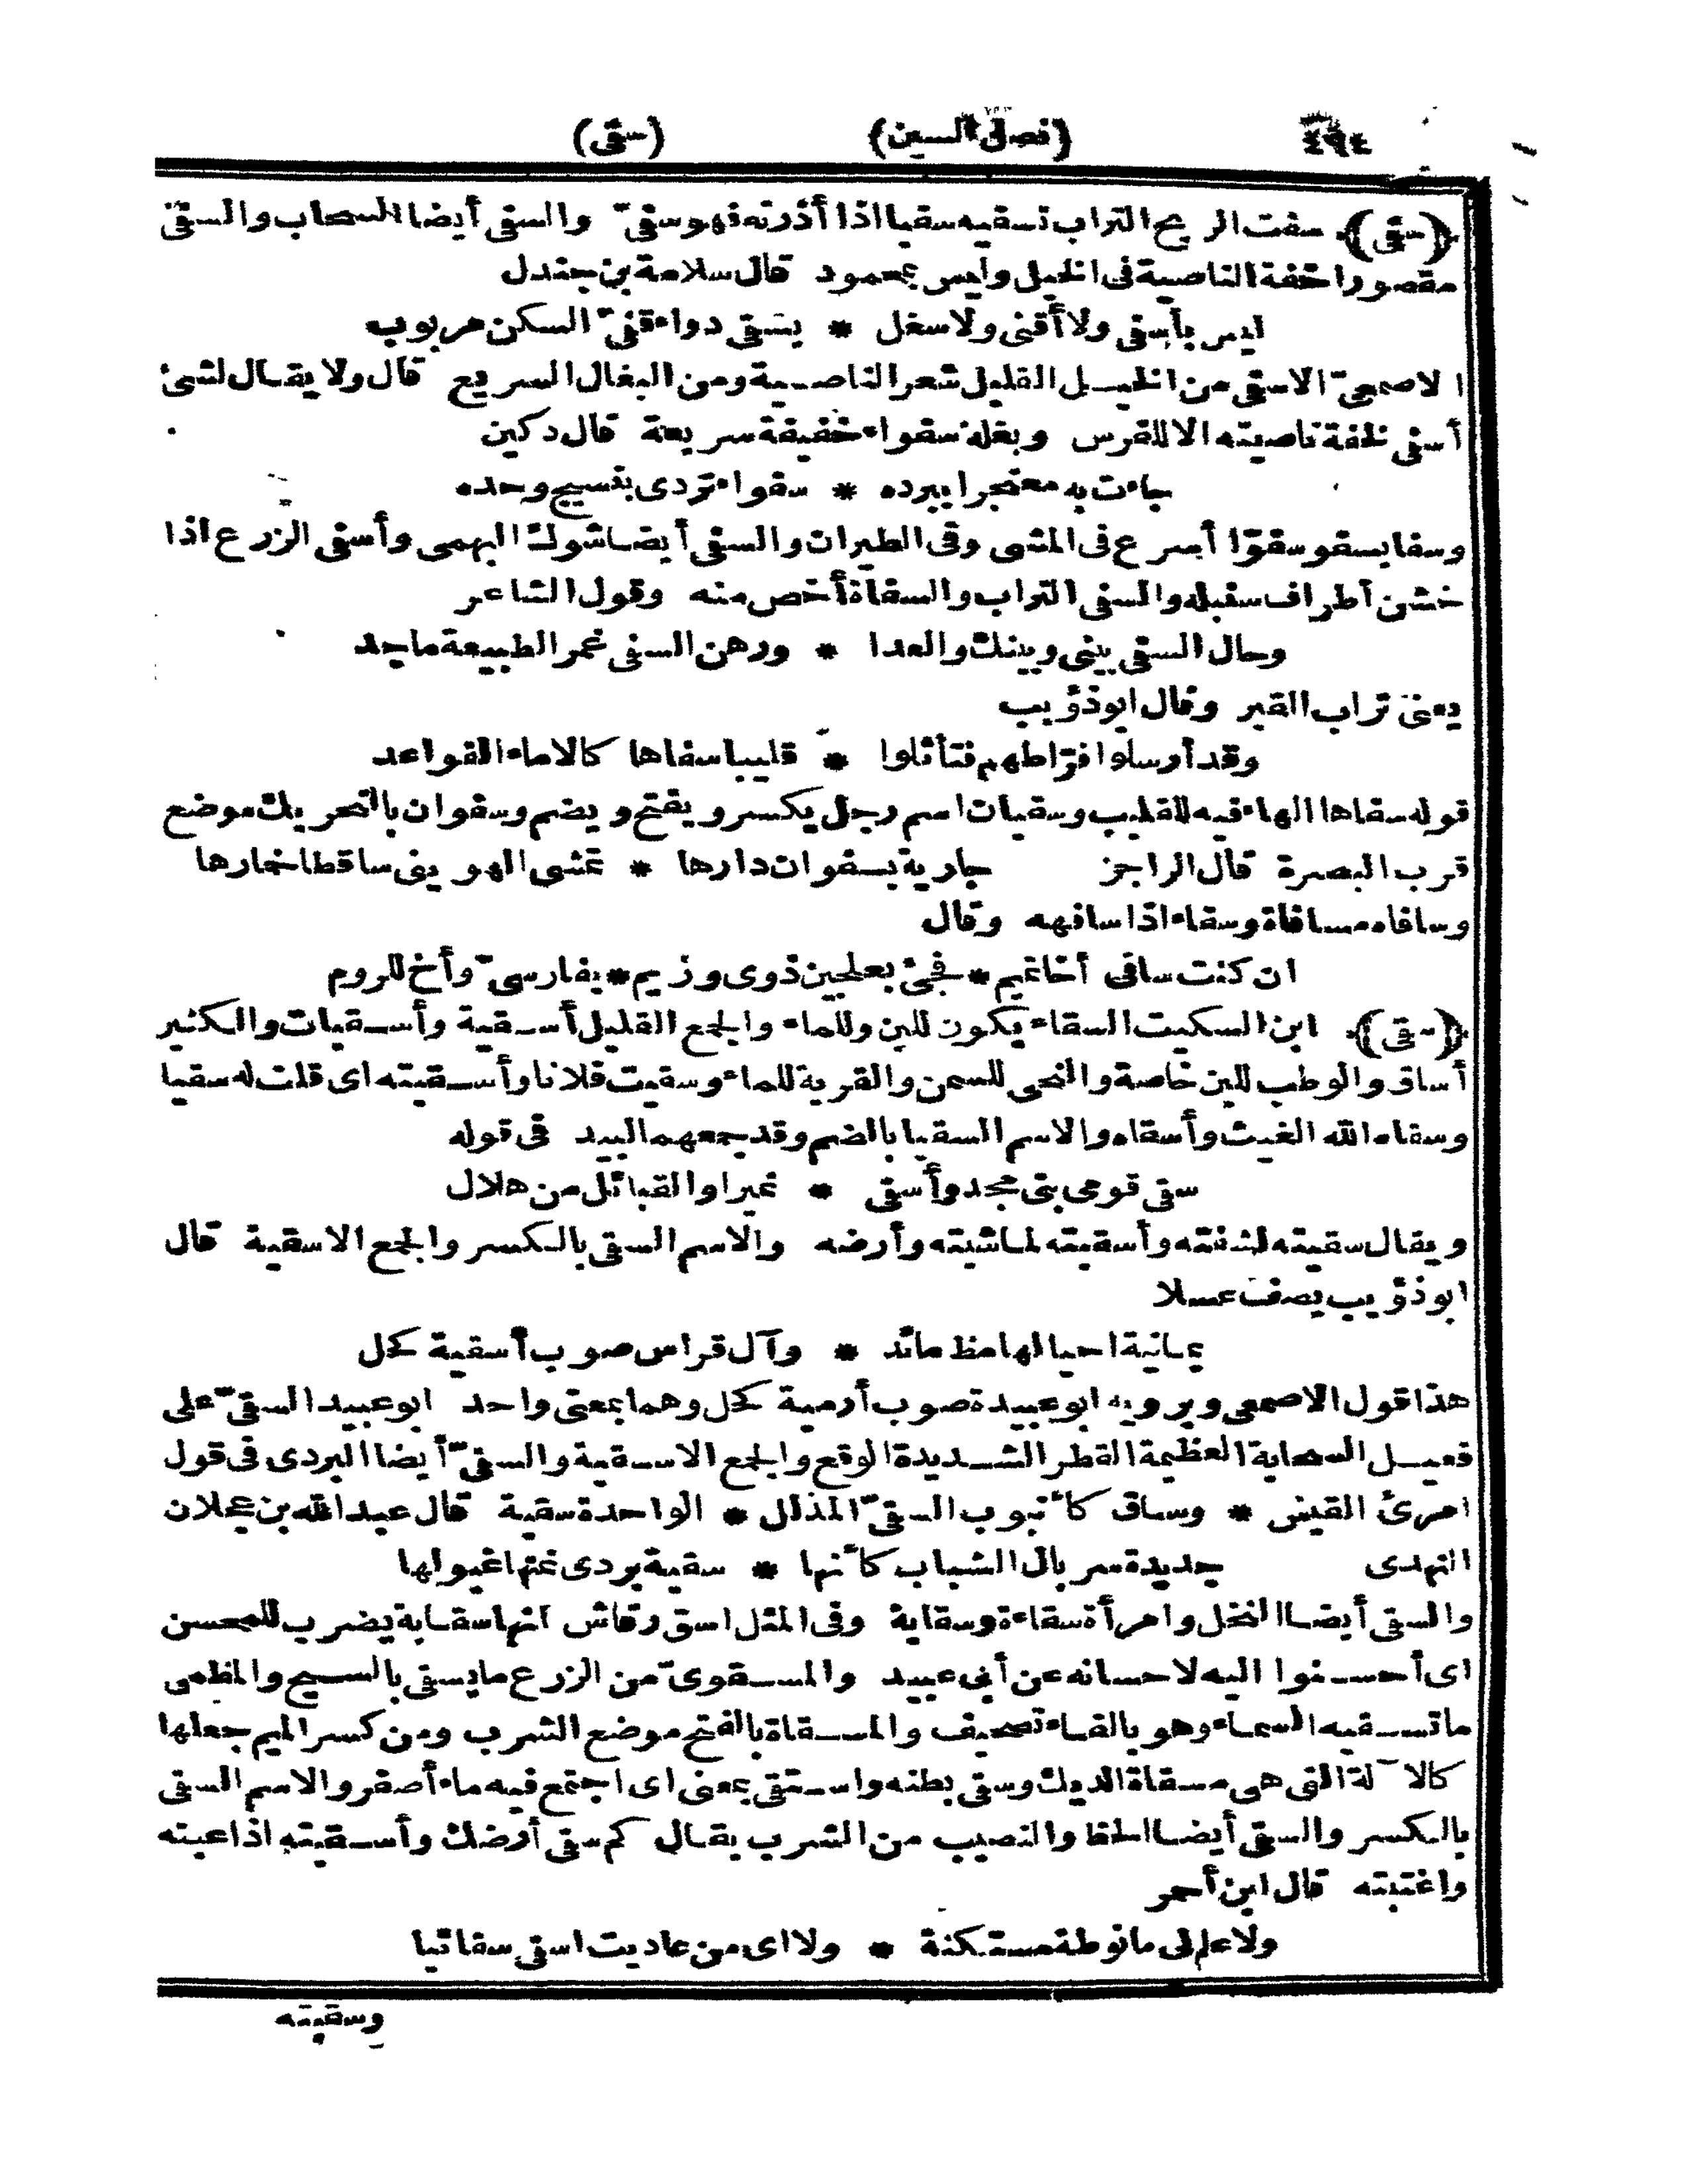 ٤٩٤ ﴿فصل السين﴾ (سقى)
﴿سفى﴾ سفت الريح التراب تسفيه سفيا اذا أذرته فهو سفىّ والسفى أيضا السحاب والسفى
مقصورا خفة الناصية فى الخيل وليس بمحمود قال سلامة بن جندل
ليس بأسفى ولا أقنى ولا سغل * يسقى دواء قفىّ السكن مربوب
الاصمعىّ الاسفى من الخيل القليل شعر الناصية ومن البغال السريع قال ولا يقال لشئ
أسفى لخفة ناصيته الا للفرس وبغلة سفواء خفيفة سريعة قال دكين
جاءت به معتجرا ببرده * سفواء تردى بنسيج وحده
وسفا يسفو سفوّا أسرع فى المشى وفى الطيران والسفى أيضا شوك البهمى وأسفى الزرع اذا
خشن أطراف سنبله والسفى التراب والسفاة أخص منه وقول الشاعر
وحال السفى بينى وبينك والعدا * ورهن السفى غمر الطبيعة ماجد
يعنى تراب القبر وقال ابوذؤيب
وقد أرسلوا فرّاطهم فتأثلوا * قليبا سفاها كالاماء القواعد
قوله سفاها الهاء فيه للقليب وسفيان اسم رجل يكسر ويفتح ويضم وسفوان بالتحريك موضع
قرب البصرة قال الراجز جارية بسفوان دارها * تمشى الهوينى ساقطا خمارها
وسافاه مسافاة وسفاء اذا سافهه وقال
ان كنت سافى أخاتميم * فجئ بعلجين ذوى وزيم * بفارسىّ وأخ للروم
﴿سقى﴾ ابن السكيت السقاء يكون للبن وللماء والجمع القليل أسقية وأسقيات والكثير
أساق والوطب للبن خاصة والنحى للسمن والقربة للماء وسقيت فلانا وأسقيته اى قلت له سقيا
وسقاه الله الغيث وأسقاه والاسم السقيا بالضم وقد جمعهما لبيد فى قوله
سقى قومى بنى مجد وأسقى * نميرا والقبائل من هلال
ويقال سقيته لشفته وأسقيته لماشيته وأرضه والاسم السقى بالكسر والجمع الاسقية قال
ابوذؤيب يصف عسلا
يمانية احيا لها مظ مائد * وآل قراس صوب أسقية كحل
هذا قول الاصمعى ويرويه ابوعبيدة صوب أرمية كحل وهما بمعنى واحد ابوعبيد السقىّ على
فعيل السحابة العظيمة القطر الشديدة الوقع والجمع الاسقية والسقىّ أيضا البردى فى قول
امرئ القيس * وساق كأنبوب السقىّ المذلل * الواحدة سقية قال عبدالله بن عجلان
النهدى جديدة سربال الشباب كأنها * سقية بردى نمتها غيولها
والسقى أيضا النخل وامرأة سقاءة وسقاية وفى المثل اسق رقاش انها سقاية يضرب للمحسن
اى أحسنوا اليه لاحسانه عن أبى عبيد والمسقوىّ من الزرع ما يسقى بالسيح والمظمى
ما تسقيه السماء وهو بالفاء تصحيف والمسقاة بالفتح موضع الشرب ومن كسر الميم جعلها
كالآلة التى هى مسقاة الديك وسقى بطنه واستسقى بمعنى اى اجتمع فيه ماء أصفر والاسم السقى
بالكسر والسقى أيضا الحظ والنصيب من الشرب يقال كم سقى أرضك وأسقيته اذا عبته
واغتبته قال ابن أحمر
ولا علم لى ما نوطة مستكنة * ولا اى من عاديت اسقى سقائيا
وسقيته